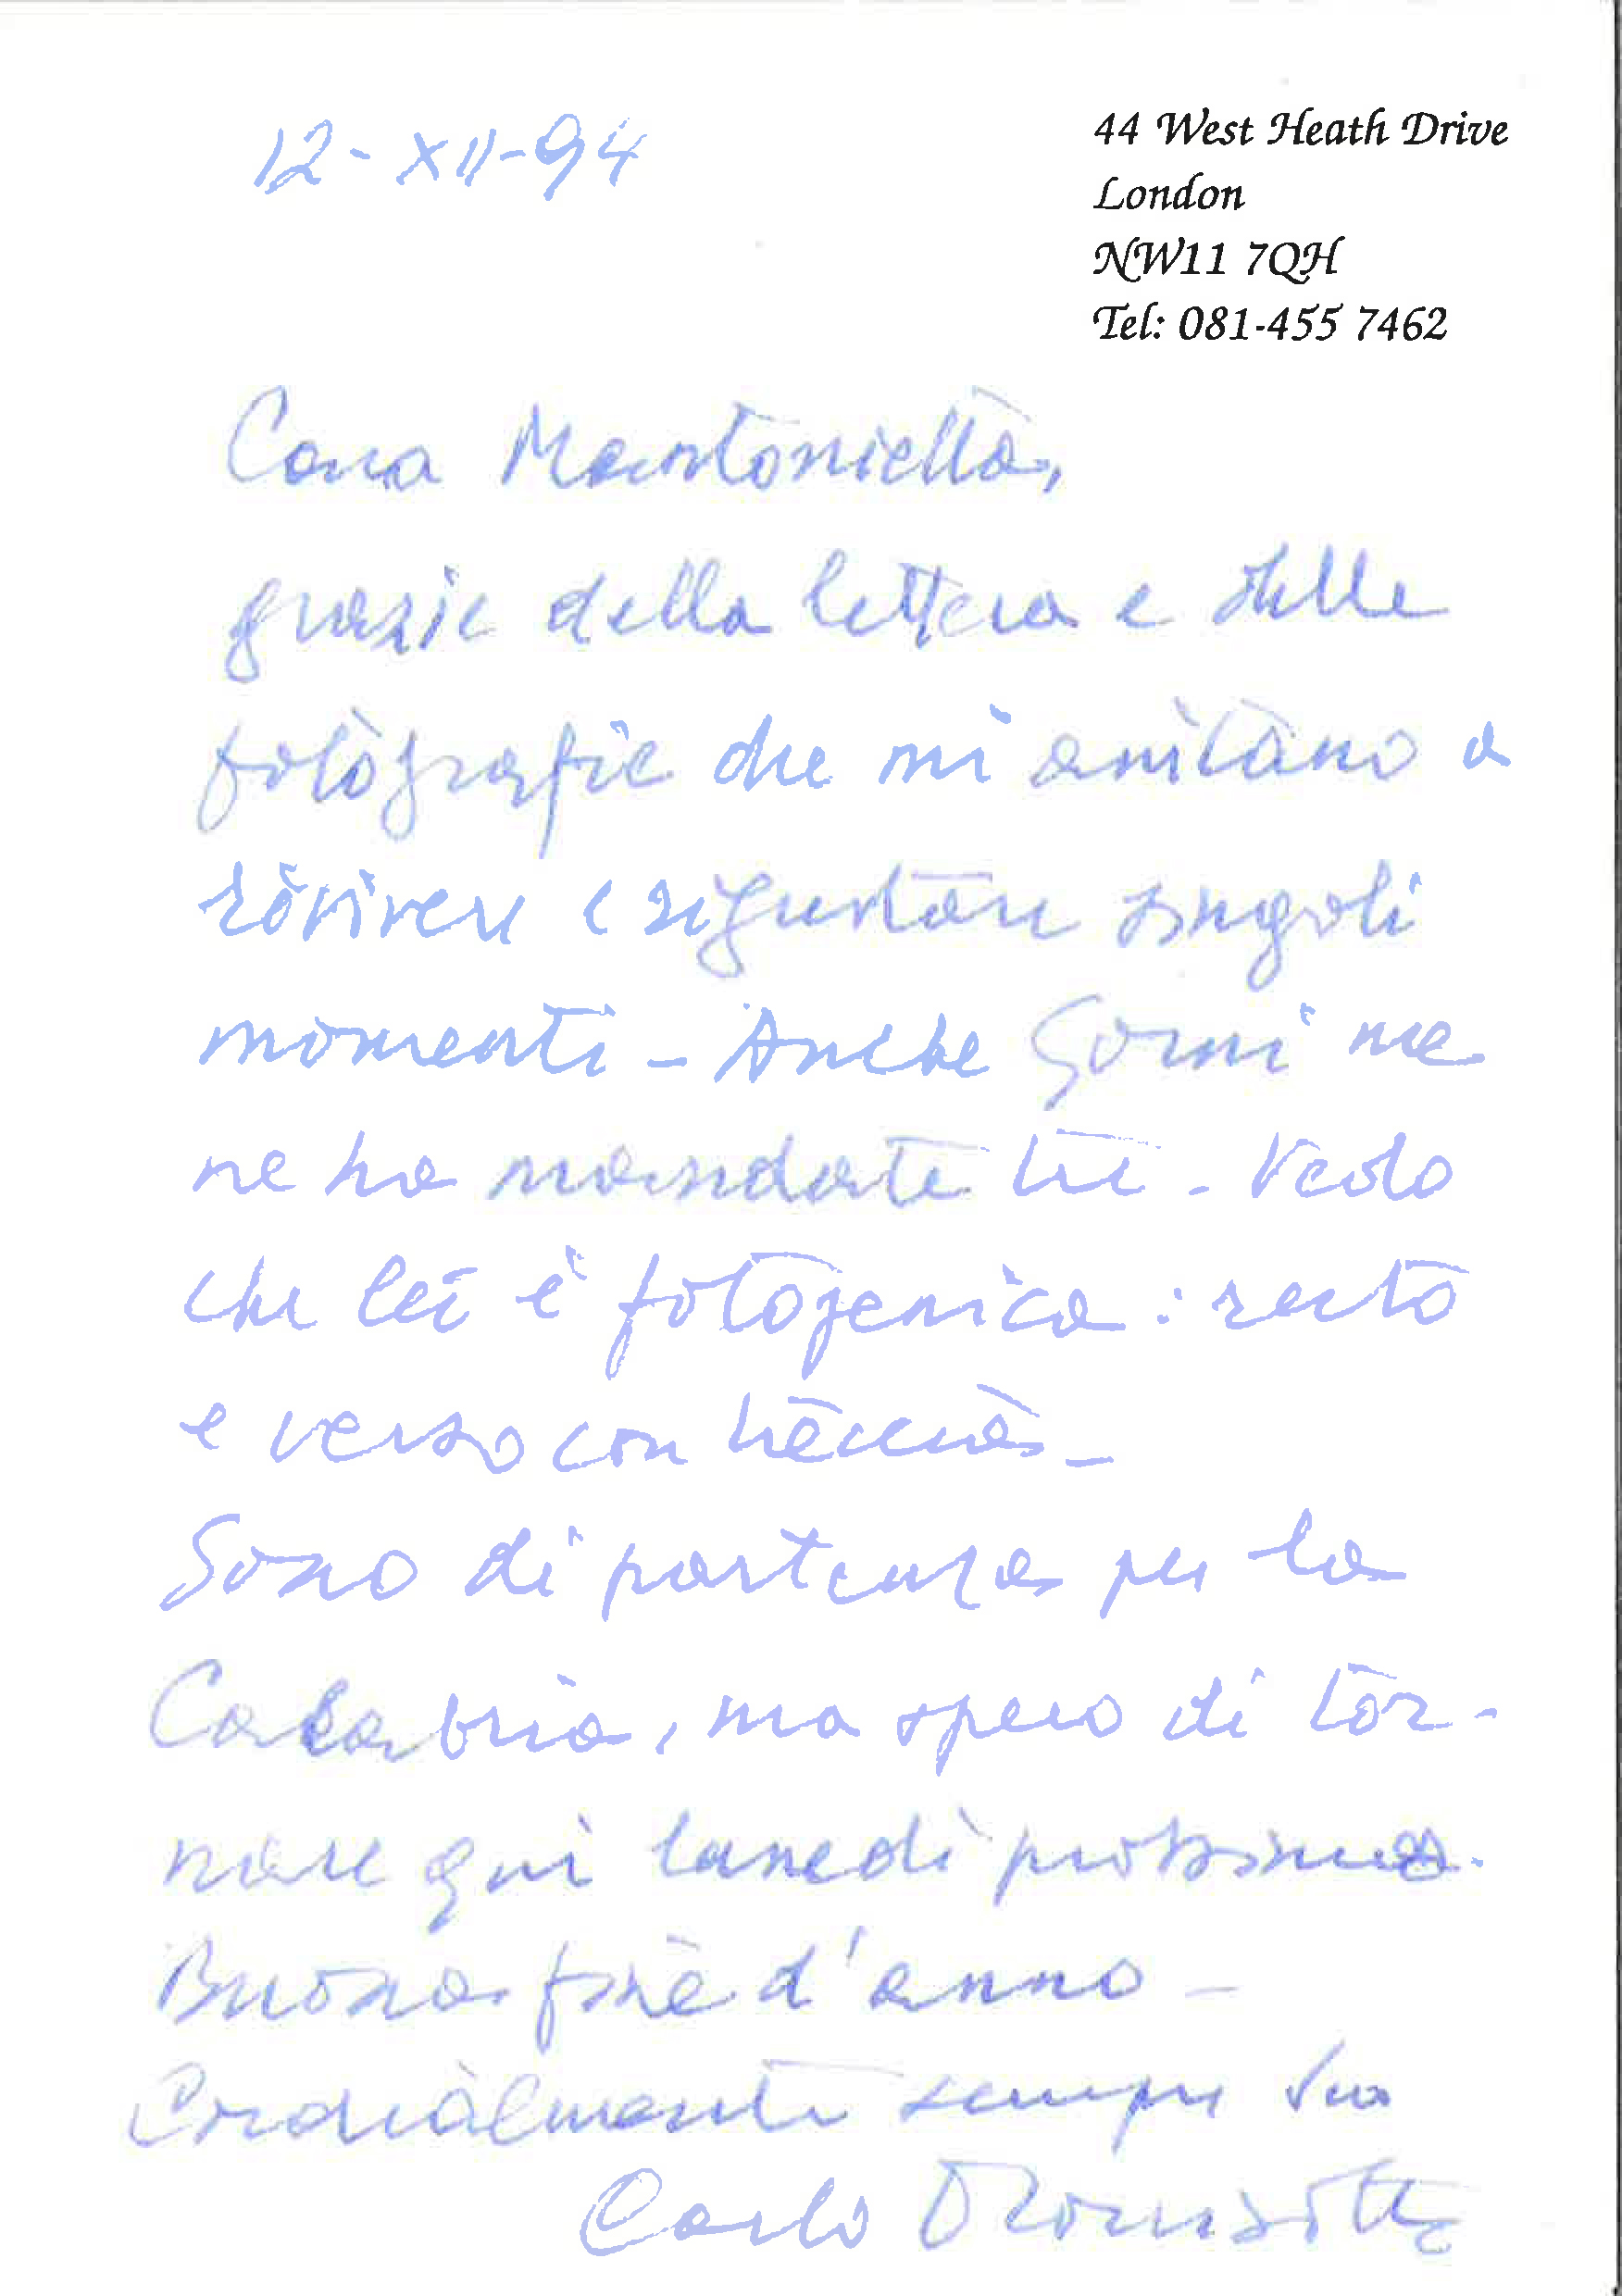 12-XII-94
44 West Heath Drive
London
NW11 7QH
Tel: 081-455 7462
Cara
grazie della lettera e delle
fotografie che mi aiutano a
rivivere e rigustare singoli
momenti - Anche Gorni me
ne ha mandate tre - Vedo
che lei è fotogenica: recto
e verso con
Sono di partenza per la
Calabria, ma spero di tor-
nare qui lunedì prossimo.
Buona fine d'anno -
Cordialmente sempre suo
Carlo Dionisotti